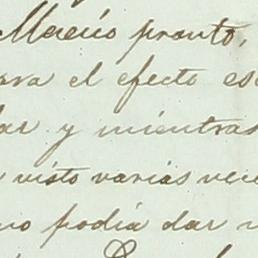 Moreno pronto,
ara el efecto es
ar y mientras
visto varias vece
no podia dar